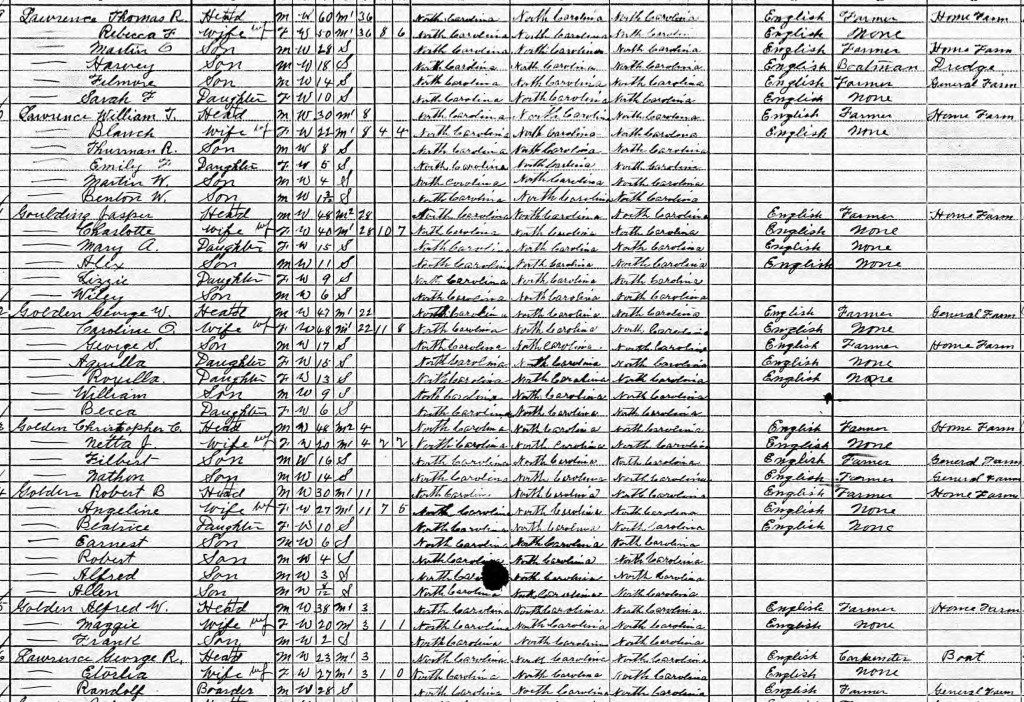 Lawrence Thomas R. Head M W 60 M1 36 North Carolina North Carolina North Carolina English Farmer Home Farm
— Rebecca F Wife F W 50 M1 36 8 6 North Carolina North Carolina North Carolina English None
— Martin C Son M W 28 S North Carolina North Carolina North Carolina English Farmer Home Farm
— Harvey Son M W 18 S North Carolina North Carolina North Carolina English Boatman Dredge
— Filmore Son M W 14 S North Carolina North Carolina North Carolina English Farmer General Farm
— Sarah F Daughter F W 10 S North Carolina North Carolina North Carolina English None
Lawrence William T. Head M W 30 M1 8 North Carolina North Carolina North Carolina English Farmer Home Farm
— Blanch Wife F W 22 M1 8 4 4 North Carolina North Carolina North Carolina English None
— Thurman R. Son M W 8 S North Carolina North Carolina North Carolina
— Emily F Daughter F W 5 S North Carolina North Carolina North Carolina
— Martin W. Son M W 4 S North Carolina North Carolina North Carolina
— Benton W. Son M W S North Carolina North Carolina North Carolina
Goulding Jasper Head M W 48 M2 28 North Carolina North Carolina North Carolina English Farmer Home Farm
— Charlotte Wife F W 40 M1 28 10 7 North Carolina North Carolina North Carolina English None
— Mary A. Daughter F W 15 S North Carolina North Carolina North Carolina English None
— Alex Son M W 11 S North Carolina North Carolina North Carolina English None
— Lizzie Daughter F W 9 S North Carolina North Carolina North Carolina
— Wiley Son M W 6 S North Carolina North Carolina North Carolina
2 Golden George W. Head M W 47 M1 22 North Carolina North Carolina North Carolina English Farmer General Farm
— Caroline O. Wife F W 48 M1 22 11 8 North Carolina North Carolina North Carolina English None
— George S. Son M W 17 S North Carolina North Carolina North Carolina English Farmer Home Farm
— Aquilla Daughter F W 15 S North Carolina North Carolina North Carolina English None
— Rovilla Daughter F W 13 S North Carolina North Carolina North Carolina English None
— William Son M W 9 S North Carolina North Carolina North Carolina
— Becca Daughter F W 6 S North Carolina North Carolina North Carolina
3 Golden Christopher C. Head M W 48 M2 4 North Carolina North Carolina North Carolina English Farmer Home Farm
— Netta J. Wife F W 20 M1 4 2 2 North Carolina North Carolina North Carolina English None
— Filbert Son M W 16 S North Carolina North Carolina North Carolina English Farmer General Farm
— Nathon Son M W 14 S North Carolina North Carolina North Carolina English Farmer General Farm
4 Golden Robert B Head M W 30 M1 11 North Carolina North Carolina North Carolina English Farmer Home Farm
— Angeline Wife F W 27 M1 11 7 5 North Carolina North Carolina North Carolina English None
— Beatrice Daughter F W 10 S North Carolina North Carolina North Carolina English None
— Earnest Son M W 6 S North Carolina North Carolina North Carolina
— Robert Son M W 4 S North Carolina North Carolina North Carolina
— Alfred Son M W 3 S North Carolina North Carolina
— Allen Son M W S North Carolina North Carolina North Carolina
5 Golden Alfred W. Head M W 38 M1 3 North Carolina North Carolina North Carolina English Farmer Home Farm
— Maggie Wife F W 20 M 3 1 1 North Carolina North Carolina North Carolina English None
— Frank Son M W 2 S North Carolina North Carolina North Carolina
6 Lawrence George R. Head M W 23 M1 3 North Carolina North Carolina North Carolina English Carpenter Boat
— Wife F W 27 M1 3 1 0 North Carolina North Carolina North Carolina English None
— Randolf Boarder M W 28 S North Carolina North Carolina North Carolina English Farmer General Farm